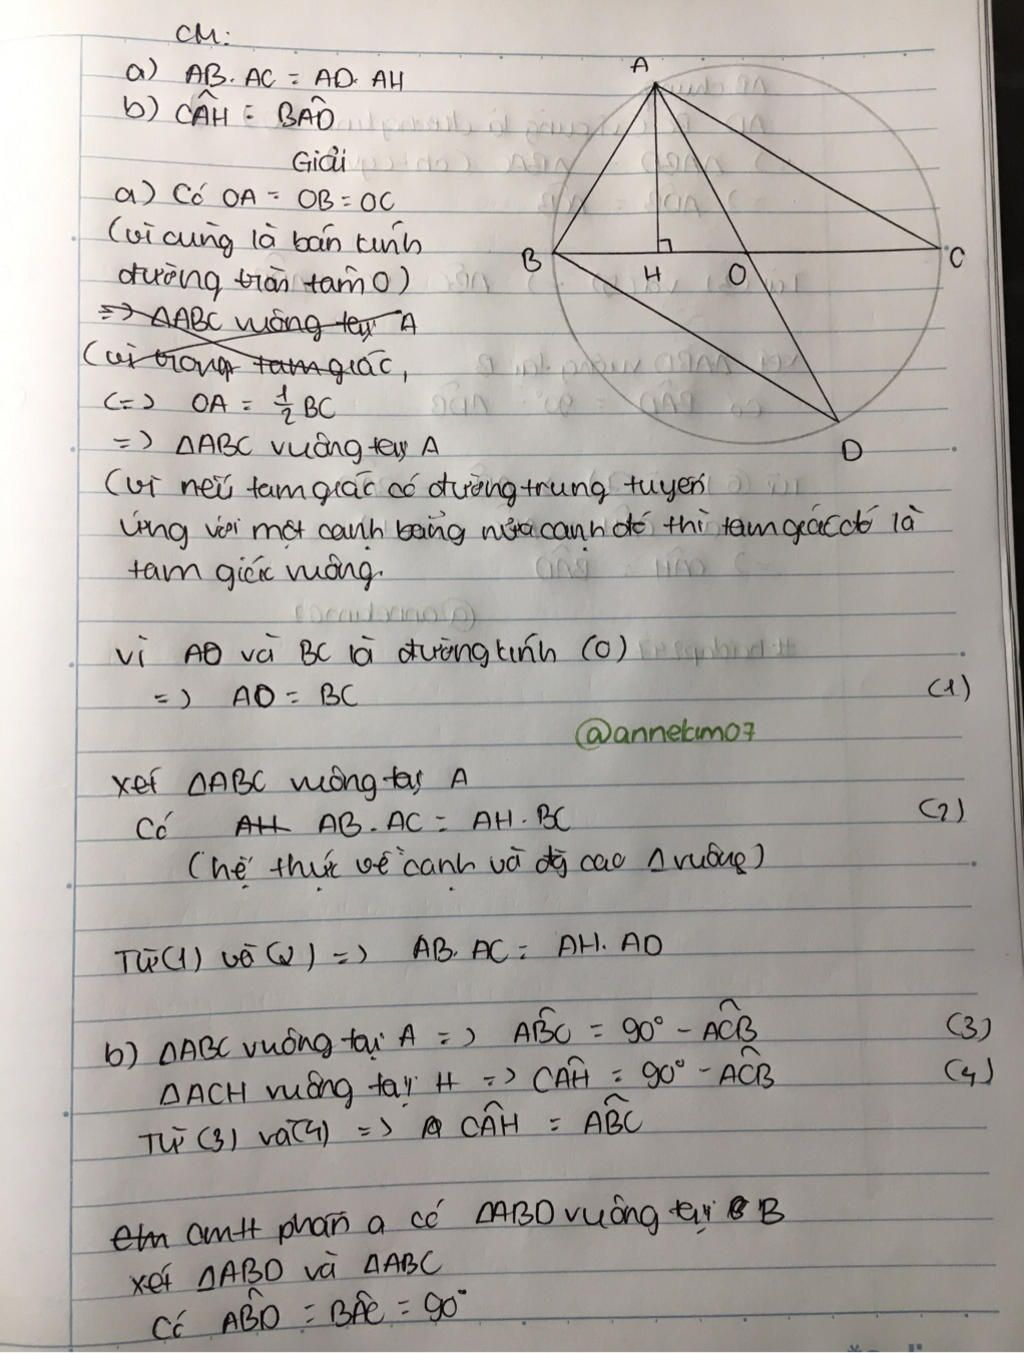 CM:
a) AB. AC = AD. AH
b) CÂH = BÂD
Giải
a) Có OA = OB = OC
(vì cùng là bán kính
đường tròn tâm O)
=> ΔABC vuông tại A
(vì trong tam giác,
(=) OA = 1/2 BC
=> ΔABC vuông tại A
(vì nếu tam giác có đường trung tuyến
ứng với một cạnh bằng nửa cạnh đó thì tam giác đó là
tam giác vuông.
vì AD và BC là đường kính (O)
=> AD = BC (1)
@annekim07
xét ΔABC vuông tại A
Có AH AB. AC = AH. BC (2)
(hệ thức về cạnh và đg cao Δ vuông)
Từ (1) và (2) => AB. AC = AH. AD
b) ΔABC vuông tại A => AB̂C = 90° - AĈB (3)
ΔACH vuông tại H => CÂH = 90° - AĈB (4)
Từ (3) và (4) => CÂH = AB̂C
cmtt phần a có ΔABD vuông tại B
xét ΔABD và ΔABC
Có AB̂D = BÂC = 90°
A
B
H
O
C
D